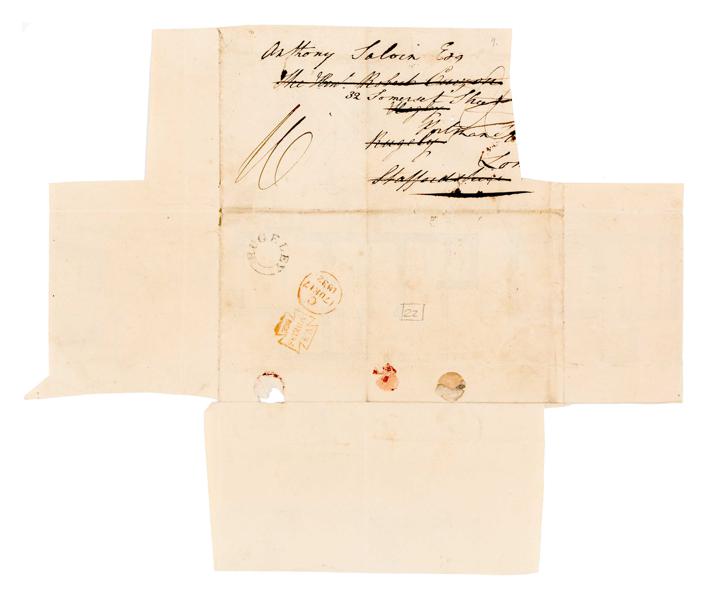 Anthony Salvin Esq
The Honl. Robert Curzon
32 Somerset Street
Hagley
Portman S
Rugeley
Lon
Staffordshire
RUGELEY
C
17 JA 17
1832
22